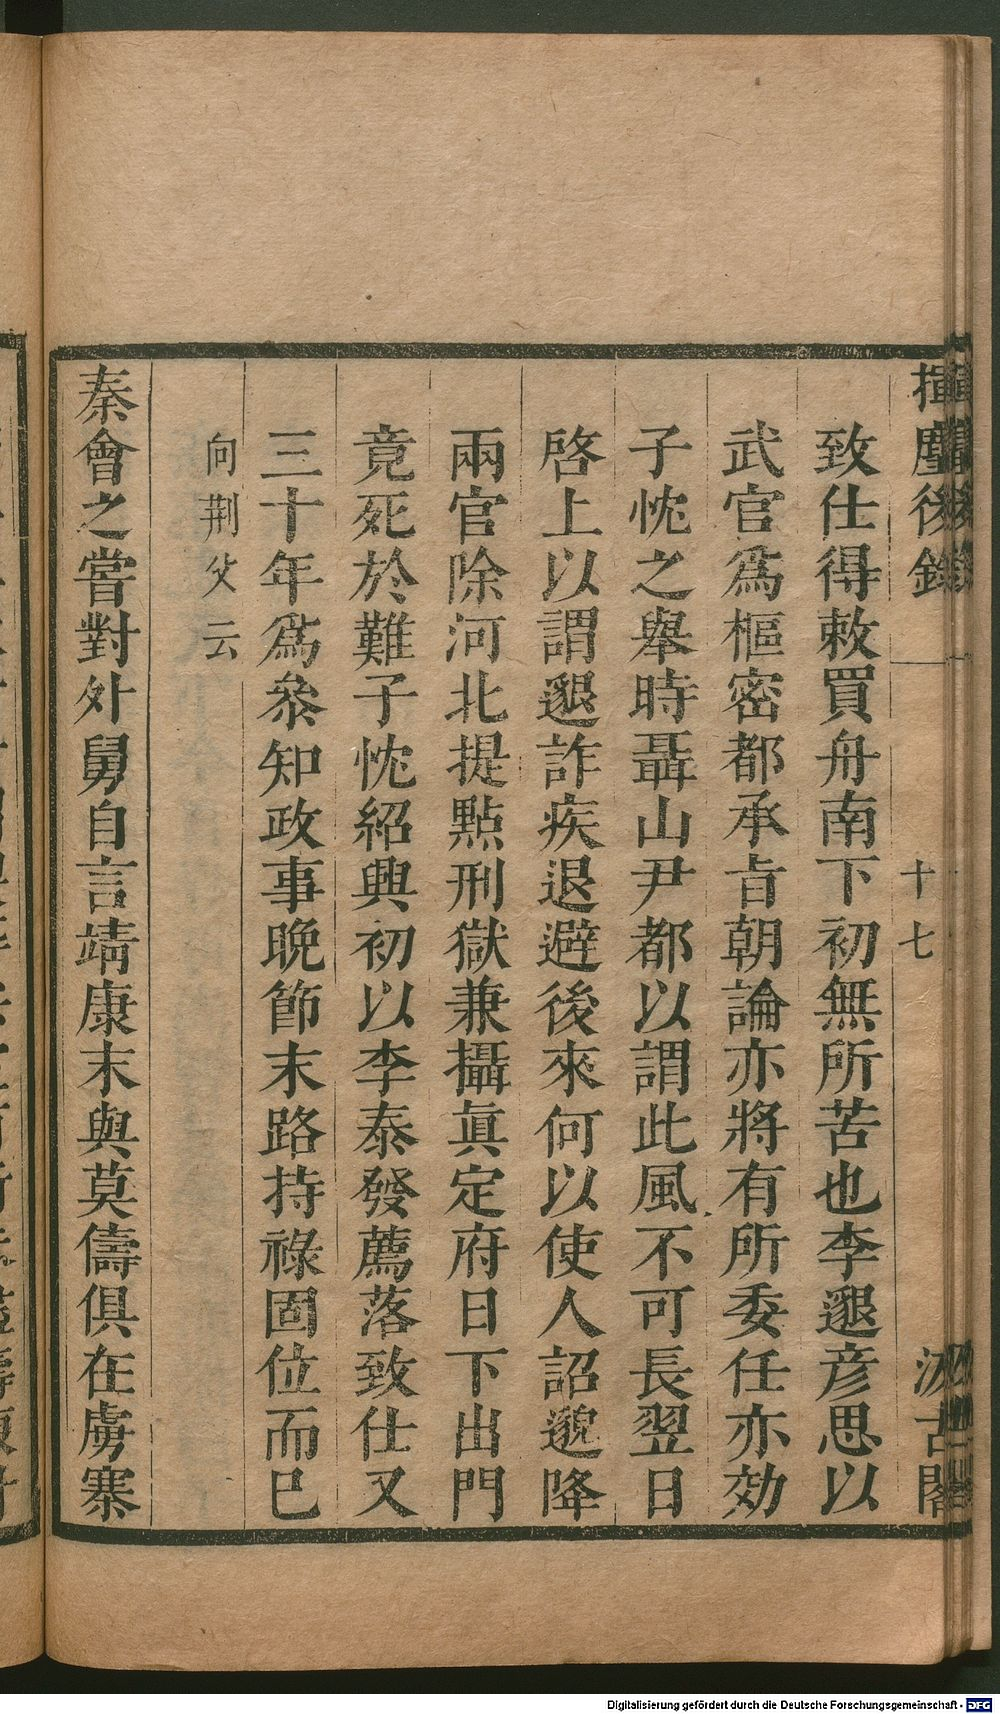 揮麈後錄
十七
汲古閣
致仕得敕買舟南下初無所苦也李邈彥思以
武官爲樞密都承旨朝論亦將有所委任亦効
子忱之舉時聶山尹都以謂此風不可長翌日
啓上以謂邈詐疾退避後來何以使人詔邈降
兩官除河北提點刑獄兼攝眞定府日下出門
竟死於難子忱紹興初以李泰發薦落致仕又
三十年爲叅知政事晩節末路持祿固位而已
向荆父云
秦會之嘗對外舅自言靖康末與莫儔俱在虜寨
Digitalisierung gefördert durch die Deutsche Forschungsgemeinschaft - DFG